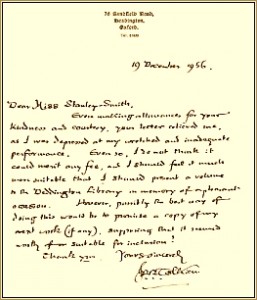 76 Sandfield Road,
Headington,
Oxford.
19 December 1956.
Dear Miss Stanley-Smith,
Even making allowances for your
kindness and courtesy, your letter relieved me,
as I was depressed at my wretched and inadequate
performance. Even so, I do not think it
could merit any fee, and I should feel it much
more suitable that I should present a volume
to the Deddington Library in memory of a pleasant
occasion. However, possibly the best way of
doing this would be to promise a copy of my
next work (if any), supposing that it seemed
suitable for inclusion!
Thank you. Yours sincerely